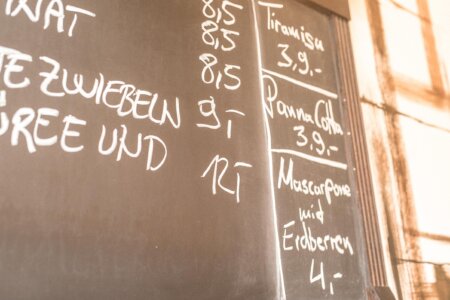 NAT 8,5
8,5
8,5
TE ZWIEBELN 9,-
ÜREE UND
12,-
Tiramisu
3,9.-
Panna Cotta
3,9.-
Mascarpone
mit
Erdberren
4,-